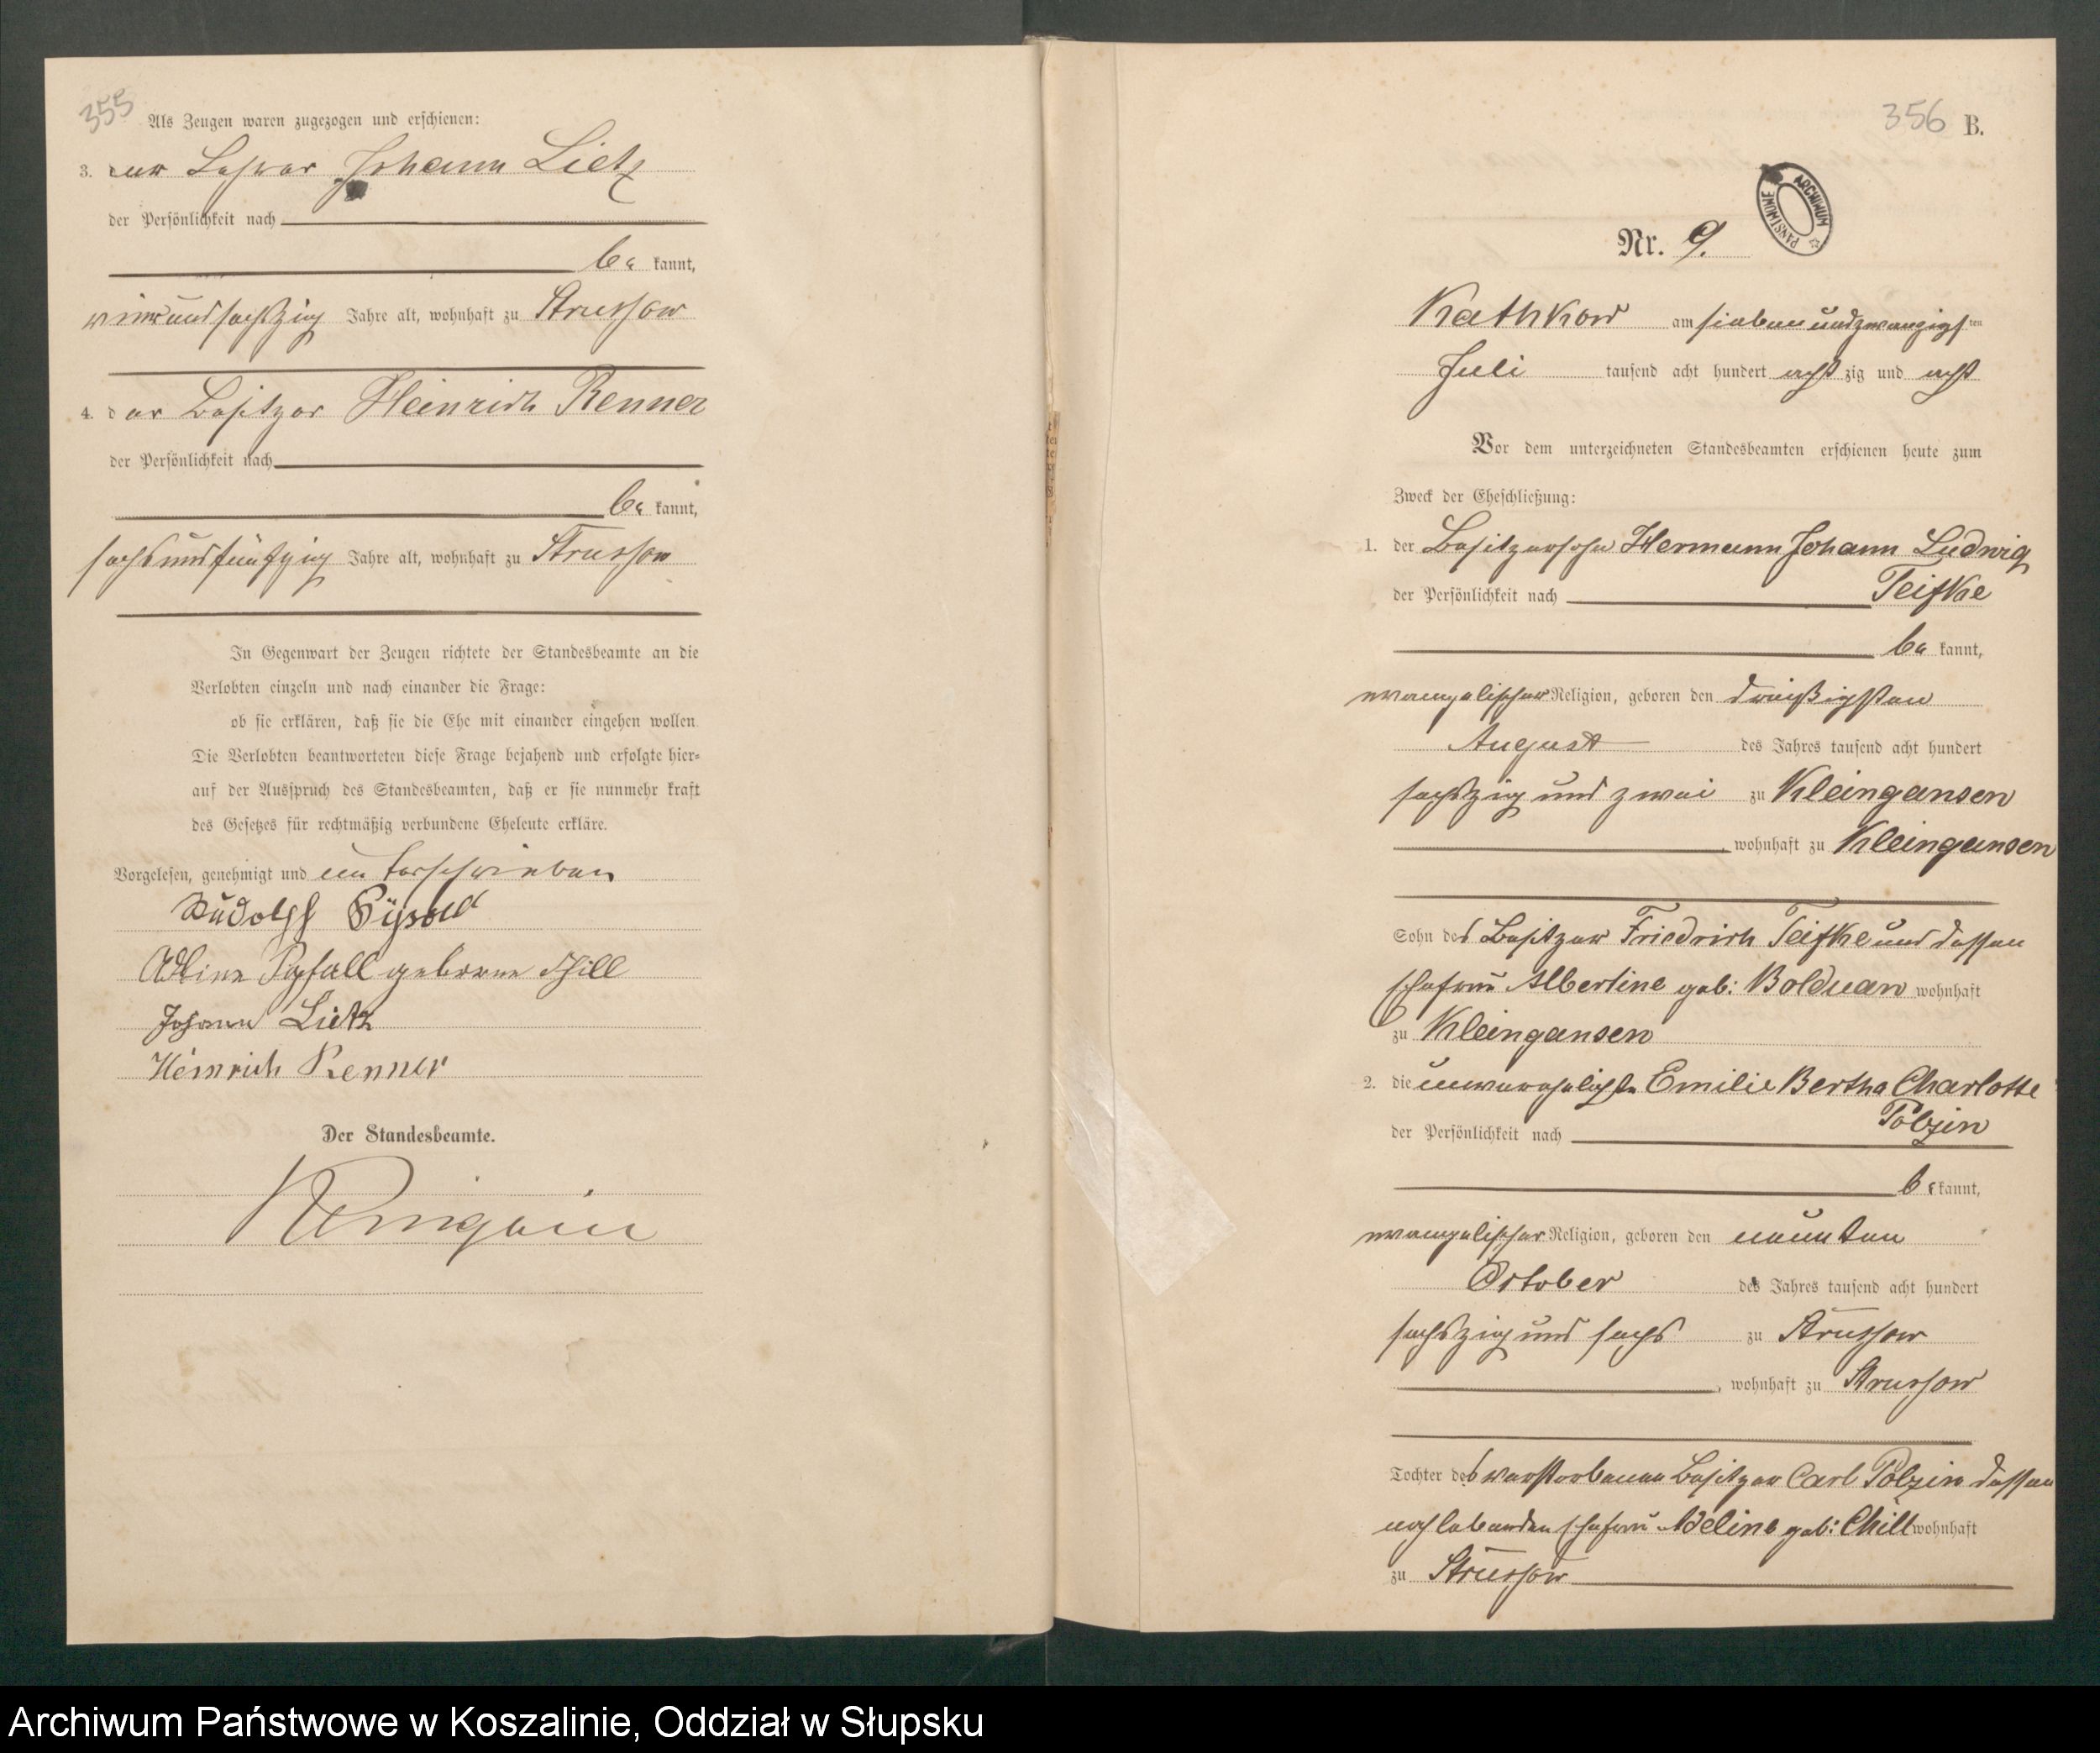 355
Als Zeugen waren zugezogen und erschienen:
3. der Johann Lietz
der Persönlichkeit nach
be kannt,
einundsechszig Jahre alt, wohnhaft zu Strussow
4. der Besitzer Heinrich Renner
der Persönlichkeit nach
be kannt,
sechsundfünfzig Jahre alt, wohnhaft zu Strussow
In Gegenwart der Zeugen richtete der Standesbeamte an die
Verlobten einzeln und nach einander die Frage:
ob sie erklären, daß sie die Ehe mit einander eingehen wollen
Die Verlobten beantworteten diese Frage bejahend und erfolgte hier=
auf der Ausspruch des Standesbeamten, daß er sie nunmehr kraft
des Gesetzes für rechtmäßig verbundene Eheleute erkläre.
Vorgelesen, genehmigt und unterschrieben
Rudolph
geborene
Johann Lietz
Heinrich Renner
Der Standesbeamte.
356 B.
ARCHIWUM PAŃSTWOWE
Nr. 9.
Kathkow am siebenundzwanzigsten
Juli tausend acht hundert achtzig und acht
Vor dem unterzeichneten Standesbeamten erschienen heute zum
Zweck der Eheschließung:
1. der Besitzersohn Hermann Johann Ludwig
der Persönlichkeit nach Teifke
be kannt,
evangelischer Religion, geboren den dreißigsten
August des Jahres tausend acht hundert
sechszig und zwei zu Kleingansen
, wohnhaft zu Kleingansen
Sohn des Besitzer Friedrich Teifke und dessen
Ehefrau Albertine geb: Bolduan wohnhaft
zu Kleingansen
2. die unverehelichte Emilie Bertha Charlotte
der Persönlichkeit nach Polzin
be kannt,
evangelischer Religion, geboren den neunten
October des Jahres tausend acht hundert
sechszig und sechs zu Strussow
, wohnhaft zu Strussow
Tochter des verstorbenen Besitzer Carl Polzin dessen
noch lebenden Ehefrau Adeline geb: Chill wohnhaft
zu Strussow
Archiwum Państwowe w Koszalinie, Oddział w Słupsku